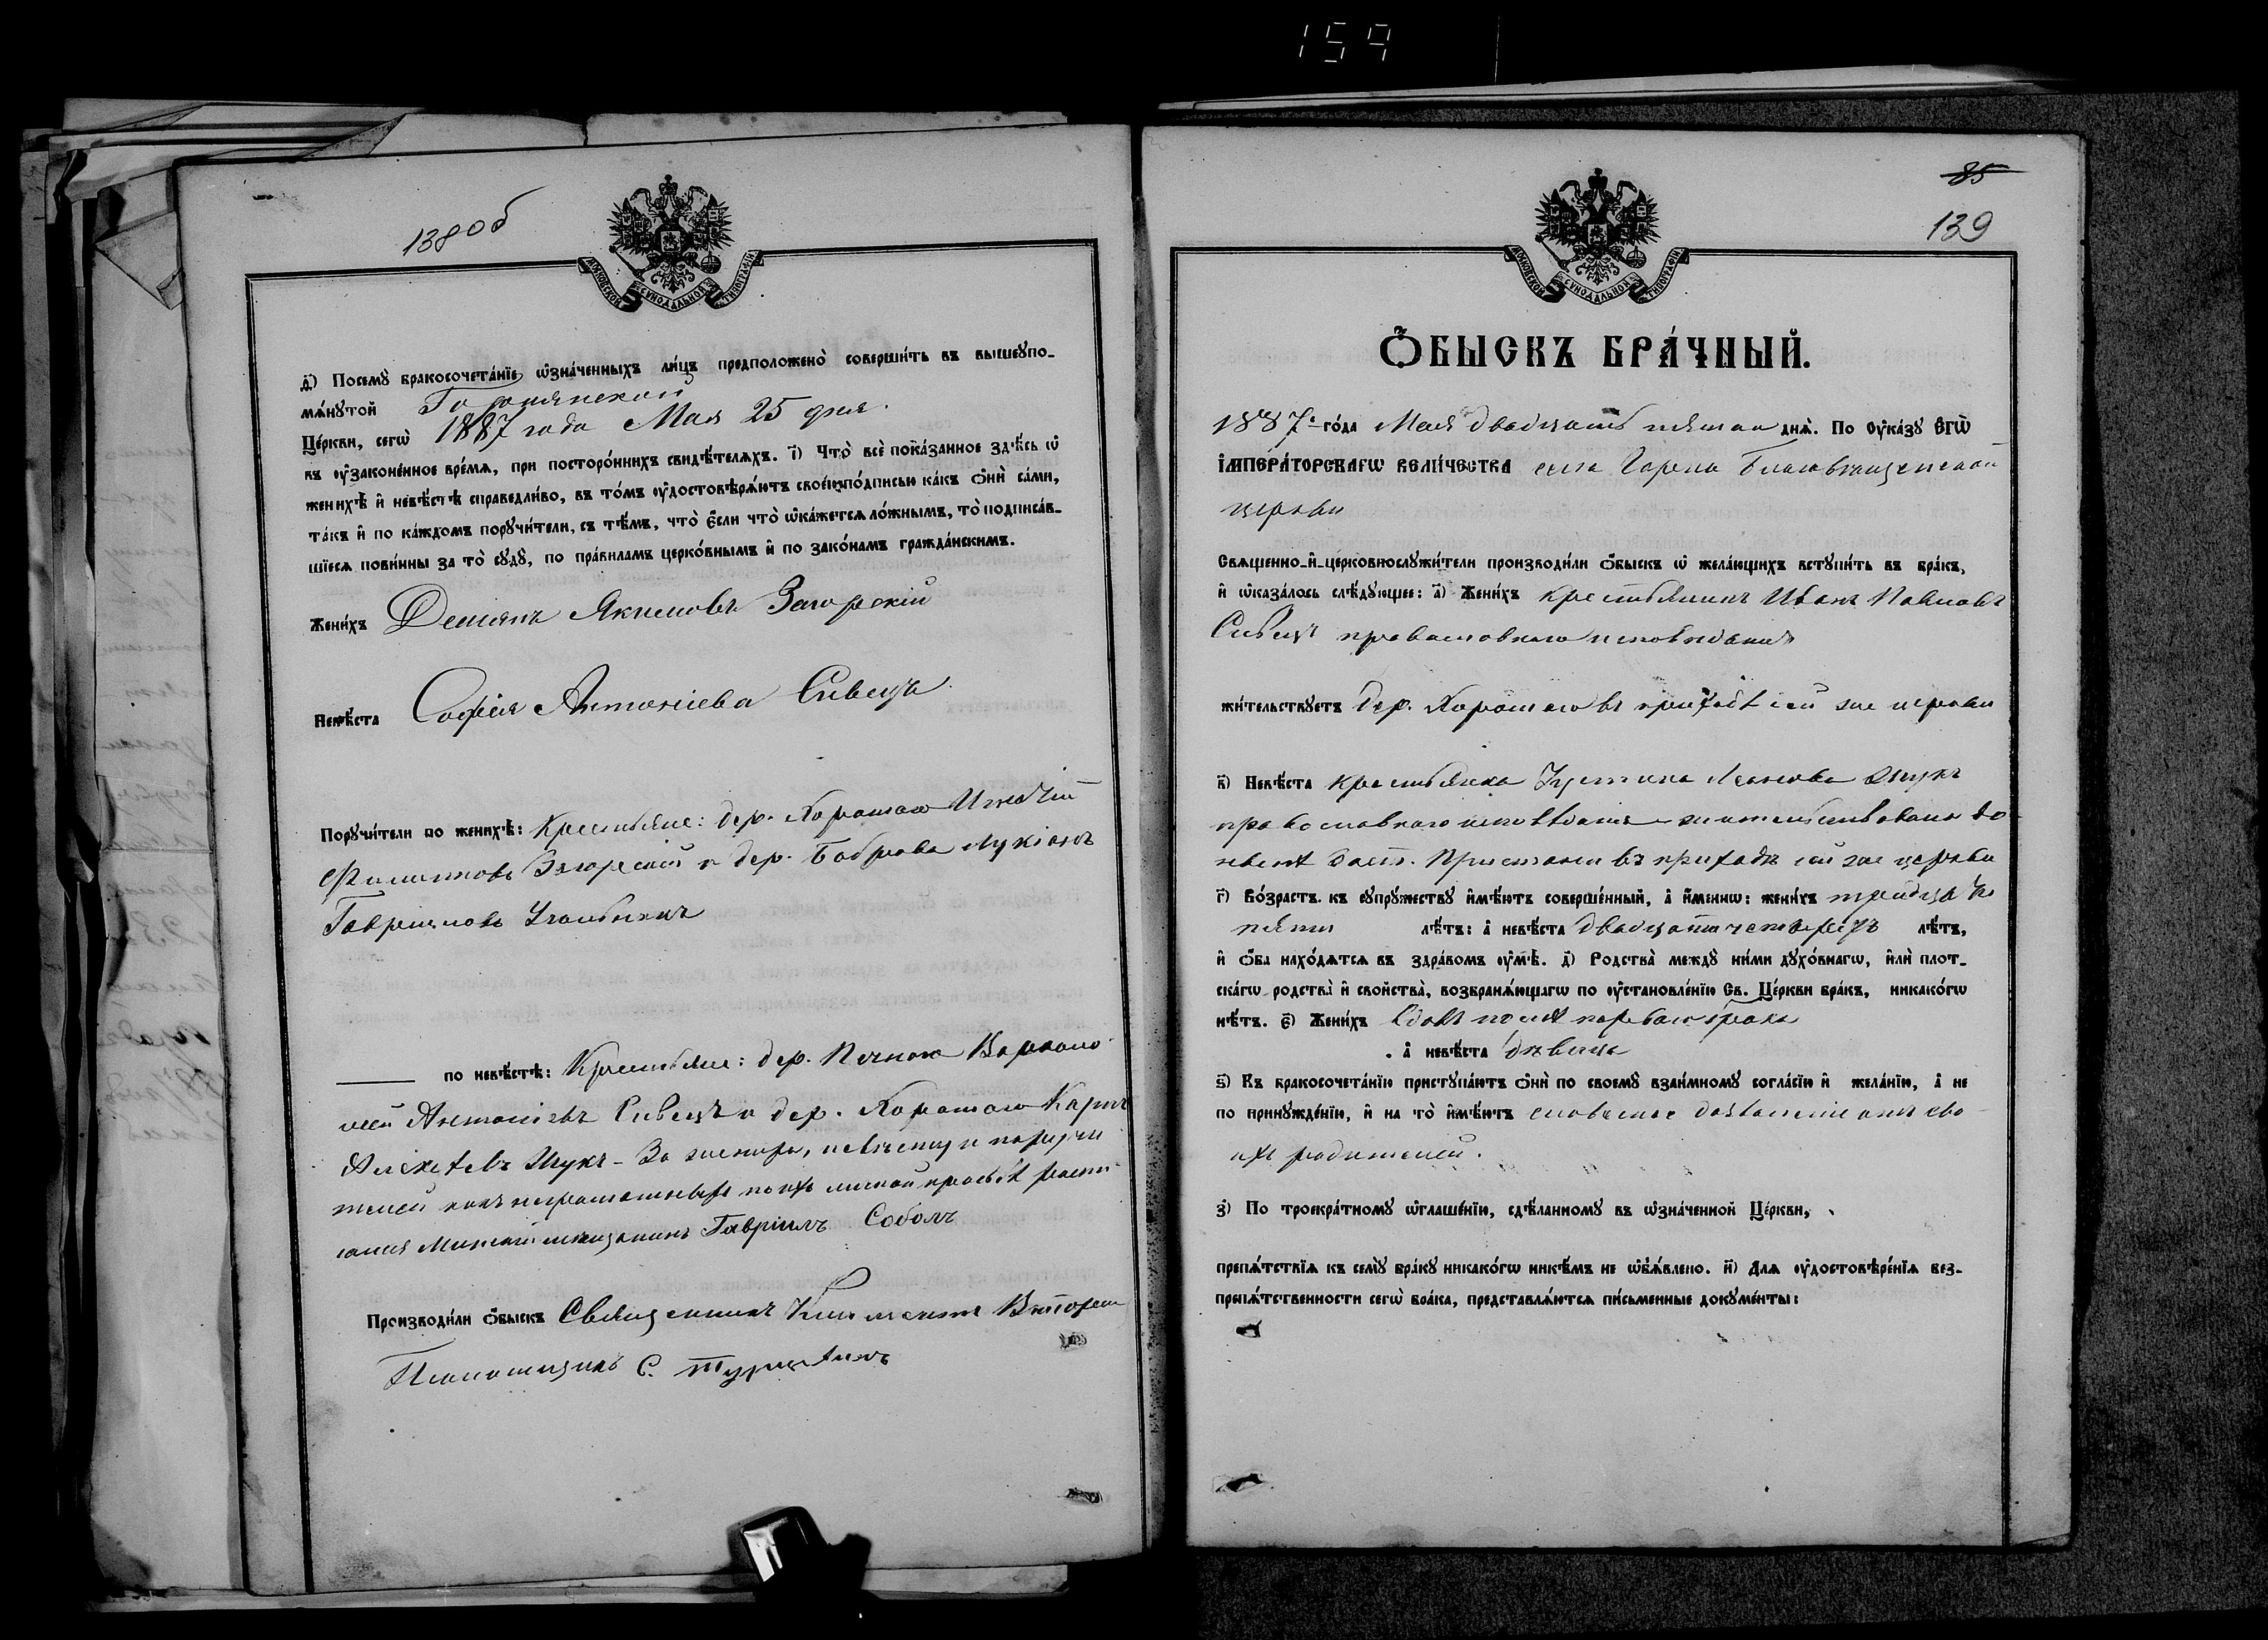 159
138 об
МОСКОВСКОЙ СѴНОДАЛЬНОЙ ТИПОГРАФІИ
д҃) Посемꙋ̀ бракосочета́нїе ѡ҆зна́ченныхъ ли́цъ предположено̀ соверши́ть въ вышеꙋпо-
мѧ́нꙋтой
Це́ркви, сегѡ̀ 1887 года Мая 25 дня.
въ ᲂу҆зако́ненное вре́мѧ, при посторо́ннихъ свидѣ́телѧхъ. і҃) Что̀ всѐ пока́занное здѣ́сь ѡ҆
женихѣ̀ и҆ невѣ́стѣ справедли́во, въ то́мъ ᲂу҆достовѣрѧ́ютъ свое́ю по́дписью ка́къ ѻ҆нѝ са́ми,
та́къ и҆ по ка́ждомъ порꙋчи́тели, съ тѣ́мъ, что̀ є҆́сли что̀ ѡ҆ка́жетсѧ ло́жнымъ, то̀ подписа́в-
шїесѧ пови́нны за то̀ сꙋдꙋ̀, по пра́виламъ церко́внымъ и҆ по зако́намъ гражда́нскимъ.
Жени́хъ Демянъ Якимовъ Загорскій
Невѣ́ста Софія Антоніева Сивецъ
Порꙋчи́тели по женихѣ̀: Крестьяне: дер. Хорошаго Игнатій
Филиповъ Загорскій и дер. Боброва Лукіанъ
Гавриловъ
по невѣ́стѣ: Крестьяне: дер. Варѳоло-
мей Антоніевъ Сивецъ и дер. Хорошаго Карпъ
Алексѣевъ Шукъ – За жениха, невѣсту и поручи
телей какъ неграмотныхъ по ихъ личной просьбѣ распи
сался Минскій мещанинъ Гавріилъ Соболь
Производи́ли ѻ҆́быскъ Священникъ Климентъ
Псаломщикъ С.
85
139
МОСКОВСКОЙ СѴНОДАЛЬНОЙ ТИПОГРАФІИ
Ѻ҆́БЫСКЪ БРА́ЧНЫЙ.
1887 го́да Мая двадцать пятаго днѧ̀. По ᲂу҆ка́зꙋ Є҆ГѠ̀
І҆МПЕРА́ТОРСКАГѠ ВЕЛИ́ЧЕСТВА села Благовѣщенской
церкви
Свѧщенно-и҆-церковнослꙋжи́тели производи́ли ѻ҆́быскъ ѡ҆ жела́ющихъ встꙋпи́ть въ бра́къ,
и҆ ѡ҆каза́лось слѣ́дꙋющее: а҃) Жени́хъ крестьянинъ Иванъ Павловъ
Сивецъ православнаго исповѣданія
жи́тельствꙋетъ дер. Хорошаго въ приходѣ сей же церкви
в҃) Невѣ́ста крестьянка Іустина Шукъ
православнаго исповѣданія жительствовала до
нынѣ въ приходѣ сей же церкви
г҃) Во́зрастъ къ сꙋпрꙋ́жествꙋ и҆мѣ́ютъ соверше́нный, а҆ и҆́меннѡ: жени́хъ тридцать
пяти лѣ́тъ: а҆ невѣ́ста двадцати четырехъ лѣ́тъ,
и҆ ѻ҆́ба нахо́дѧтсѧ въ здра́вомъ ᲂу҆мѣ̀. д҃) Родства̀ междꙋ̀ ни́ми дꙋхо́внагѡ, и҆лѝ плот-
ска́гѡ родства̀ и҆ свойства̀, возбранѧ́ющагѡ по ᲂу҆становле́нїю Св. Це́ркви бра́къ, никако́гѡ
нѣ́тъ. є҃) Жени́хъ вдовъ послѣ перваго брака
а҆ невѣ́ста дѣвица
ѕ҃) Къ бракосочета́нїю пристꙋпа́ютъ ѻ҆нѝ по своемꙋ̀ взаи́мномꙋ согла́сїю и҆ жела́нїю, а҆ не
по принꙋжде́нїю, и҆ на то̀ и҆мѣ́ютъ словесное дозволеніе отъ сво
ихъ родителей.
з҃) По троекра́тномꙋ ѡ҆глаше́нїю, сдѣ́ланномꙋ въ ѡ҆зна́ченной Це́ркви,
препѧ́тствїѧ къ семꙋ̀ бра́кꙋ никако́гѡ никѣ́мъ не ѡ҆б̾ѧ́влено. и҃) Длѧ ᲂу҆достовѣре́нїѧ без-
препѧ́тственности сегѡ̀ бра́ка, представлѧ́ютсѧ пи́сьменные докꙋме́нты: